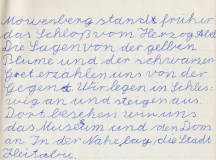 Möwenberg stand früher
das Schloß vom Herzog
Die Sagen von der gelben
Blume und der schwarzen
Gret erzählen uns von der
Gegend. Wir legen in Schles-
wig an und steigen aus.
Dort besehen wir uns
das Museum und den Dom
an. In der Nähe lag die Stadt